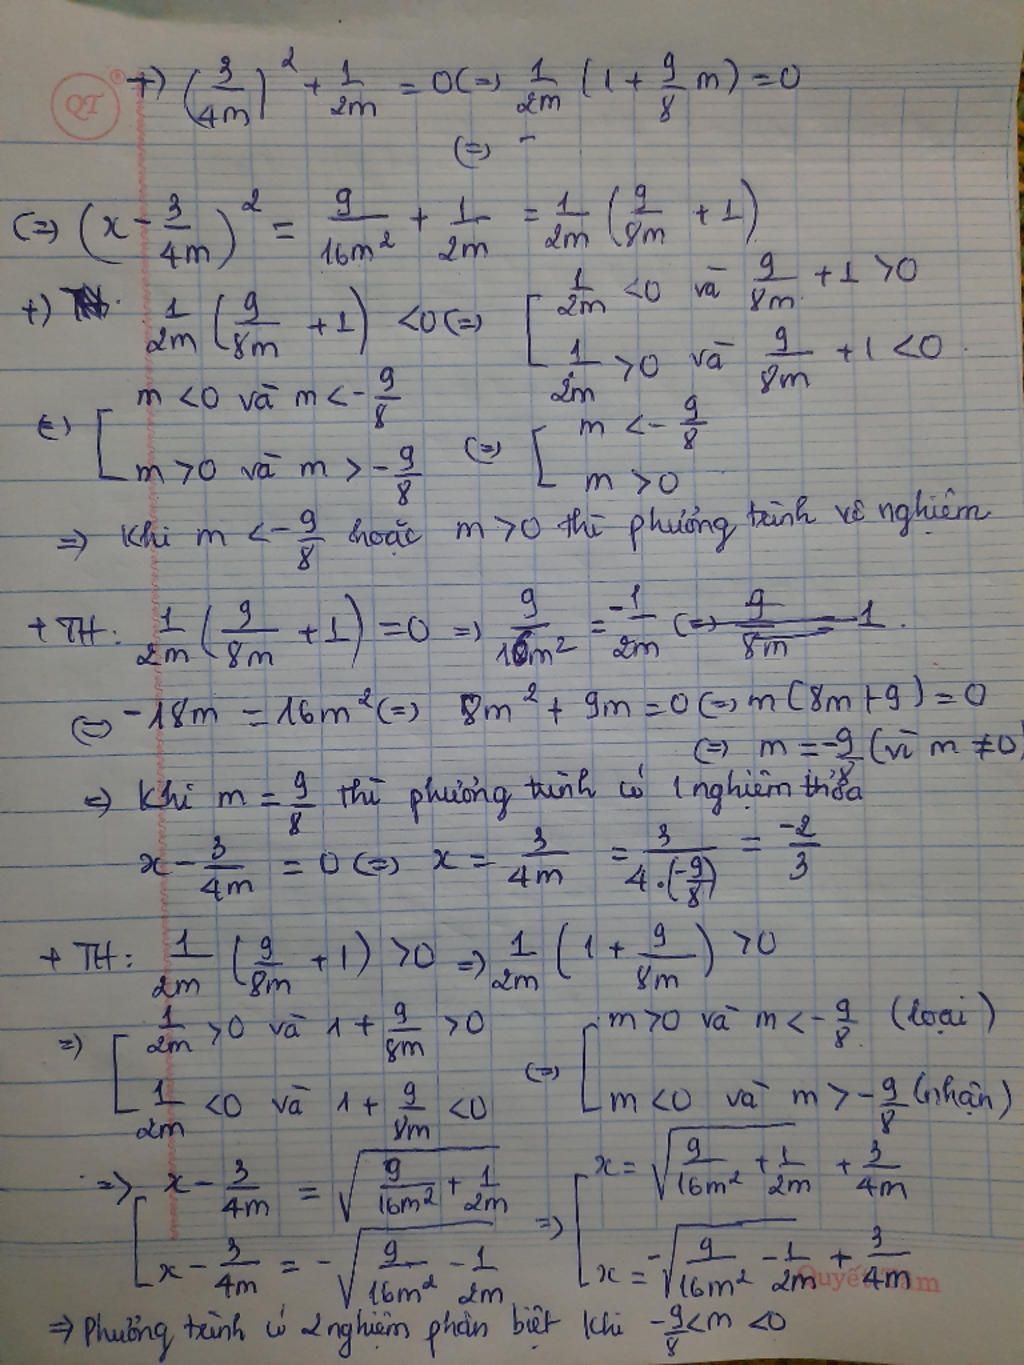 QT
+) (3/4m)² + 1/2m = 0 (=) 1/2m (1 + 9/8 m) = 0
(=) -
(=) (x - 3/4m)² = 9/16m² + 1/2m = 1/2m (9/8m + 1)
+) 1/2m (9/8m + 1) < 0 (=) [ 1/2m < 0 và 9/8m + 1 > 0
1/2m > 0 và 9/8m + 1 < 0.
(=) [ m < 0 và m < - 9/8 (=) [ m < - 9/8
m > 0 và m > - 9/8 m > 0
=> Khi m < - 9/8 hoặc m > 0 thì phương trình vô nghiệm
+ TH: 1/2m (9/8m + 1) = 0 => 9/16m² = -1/2m (=) 9/8m = 1.
(=) -18m = 16m² (=) 8m² + 9m = 0 (=) m(8m+9) = 0
(=) m = -9/8 (vì m ≠ 0)
=> Khi m = 9/8 thì phương trình có 1 nghiệm thỏa
x - 3/4m = 0 (=) x = 3/4m = 3/4.(-9/8) = -2/3
+ TH: 1/2m (9/8m + 1) > 0 => 1/2m (1 + 9/8m) > 0
=> [ 1/2m > 0 và 1 + 9/8m > 0 (=) [ m > 0 và m < - 9/8 (loại)
1/2m < 0 và 1 + 9/8m < 0 m < 0 và m > - 9/8 (nhận)
=> [ x - 3/4m = √(9/16m² + 1/2m) => [ x = √(9/16m² + 1/2m) + 3/4m
x - 3/4m = - √(9/16m² - 1/2m) x = - √(9/16m² - 1/2m) + 3/4m
=> Phương trình có 2 nghiệm phân biệt khi - 9/8 < m < 0